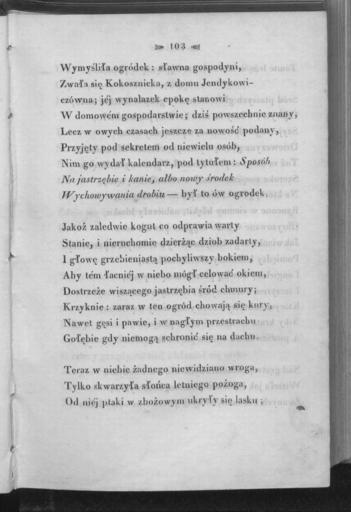 103
Wymyśliła ogródek: sławna gospodyni,
Zwała się Kokosznicka, z domu Jendykowi-
czówna; jéj wynalazek epokę stanowi
W domowém gospodarstwie; dziś powszechnie znany,
Lecz w owych czasach jeszcze za nowość podany,
Przyjęty pod sekretem od niewielu osób,
Nim go wydał kalendarz, pod tytułem: Sposób
Na jastrzębie i kanie, albo nowy środek
Wychowywania drobiu — był to ów ogrodek.
Jakoż zaledwie kogut co odprawia warty
Stanie, i nieruchomie dzierżąc dziob zadarty,
I głowę grzebieniastą pochyliwszy bokiem,
Aby tém łacniéj w niebo mógł celować okiem,
Dostrzeże wiszącego jastrzębia śród chmury;
Krzyknie: zaraz w ten ogród chowają się kury,
Nawet gęsi i pawie, i w nagłym przestrachu
Gołębie gdy niemogą schronić się na dachu.
Teraz w niebie żadnego niewidziano wroga,
Tylko skwarzyła słońca letniego pożoga,
Od niéj ptaki w zbożowym ukryły się lasku;